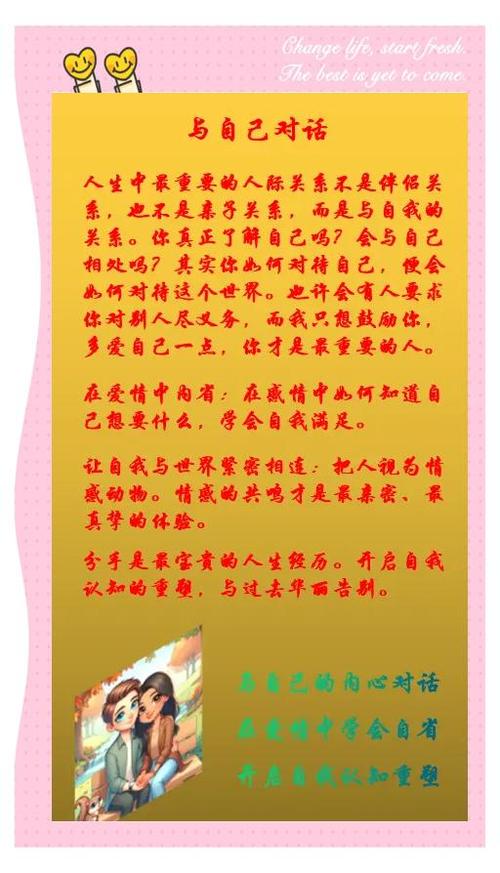 Change life, start fresh.
The best is yet to come.
与自己对话
人生中最重要的人际关系不是伴侣关
系，也不是亲子关系，而是与自我的
关系。你真正了解自己吗？会与自己
相处吗？其实你如何对待自己，便会
如何对待这个世界。也许会有人要求
你对别人尽义务，而我只想鼓励你，
多爱自己一点，你才是最重要的人。
在爱情中内省：在感情中如何知道自
己想要什么，学会自我满足。
让自我与世界紧密相连：把人视为情
感动物。情感的共鸣才是最亲密、最
真挚的体验。
分手是最宝贵的人生经历。开启自我
认知的重塑，与过去华丽告别。
与自己的内心对话
在爱情中学会自省
开启自我认知重塑